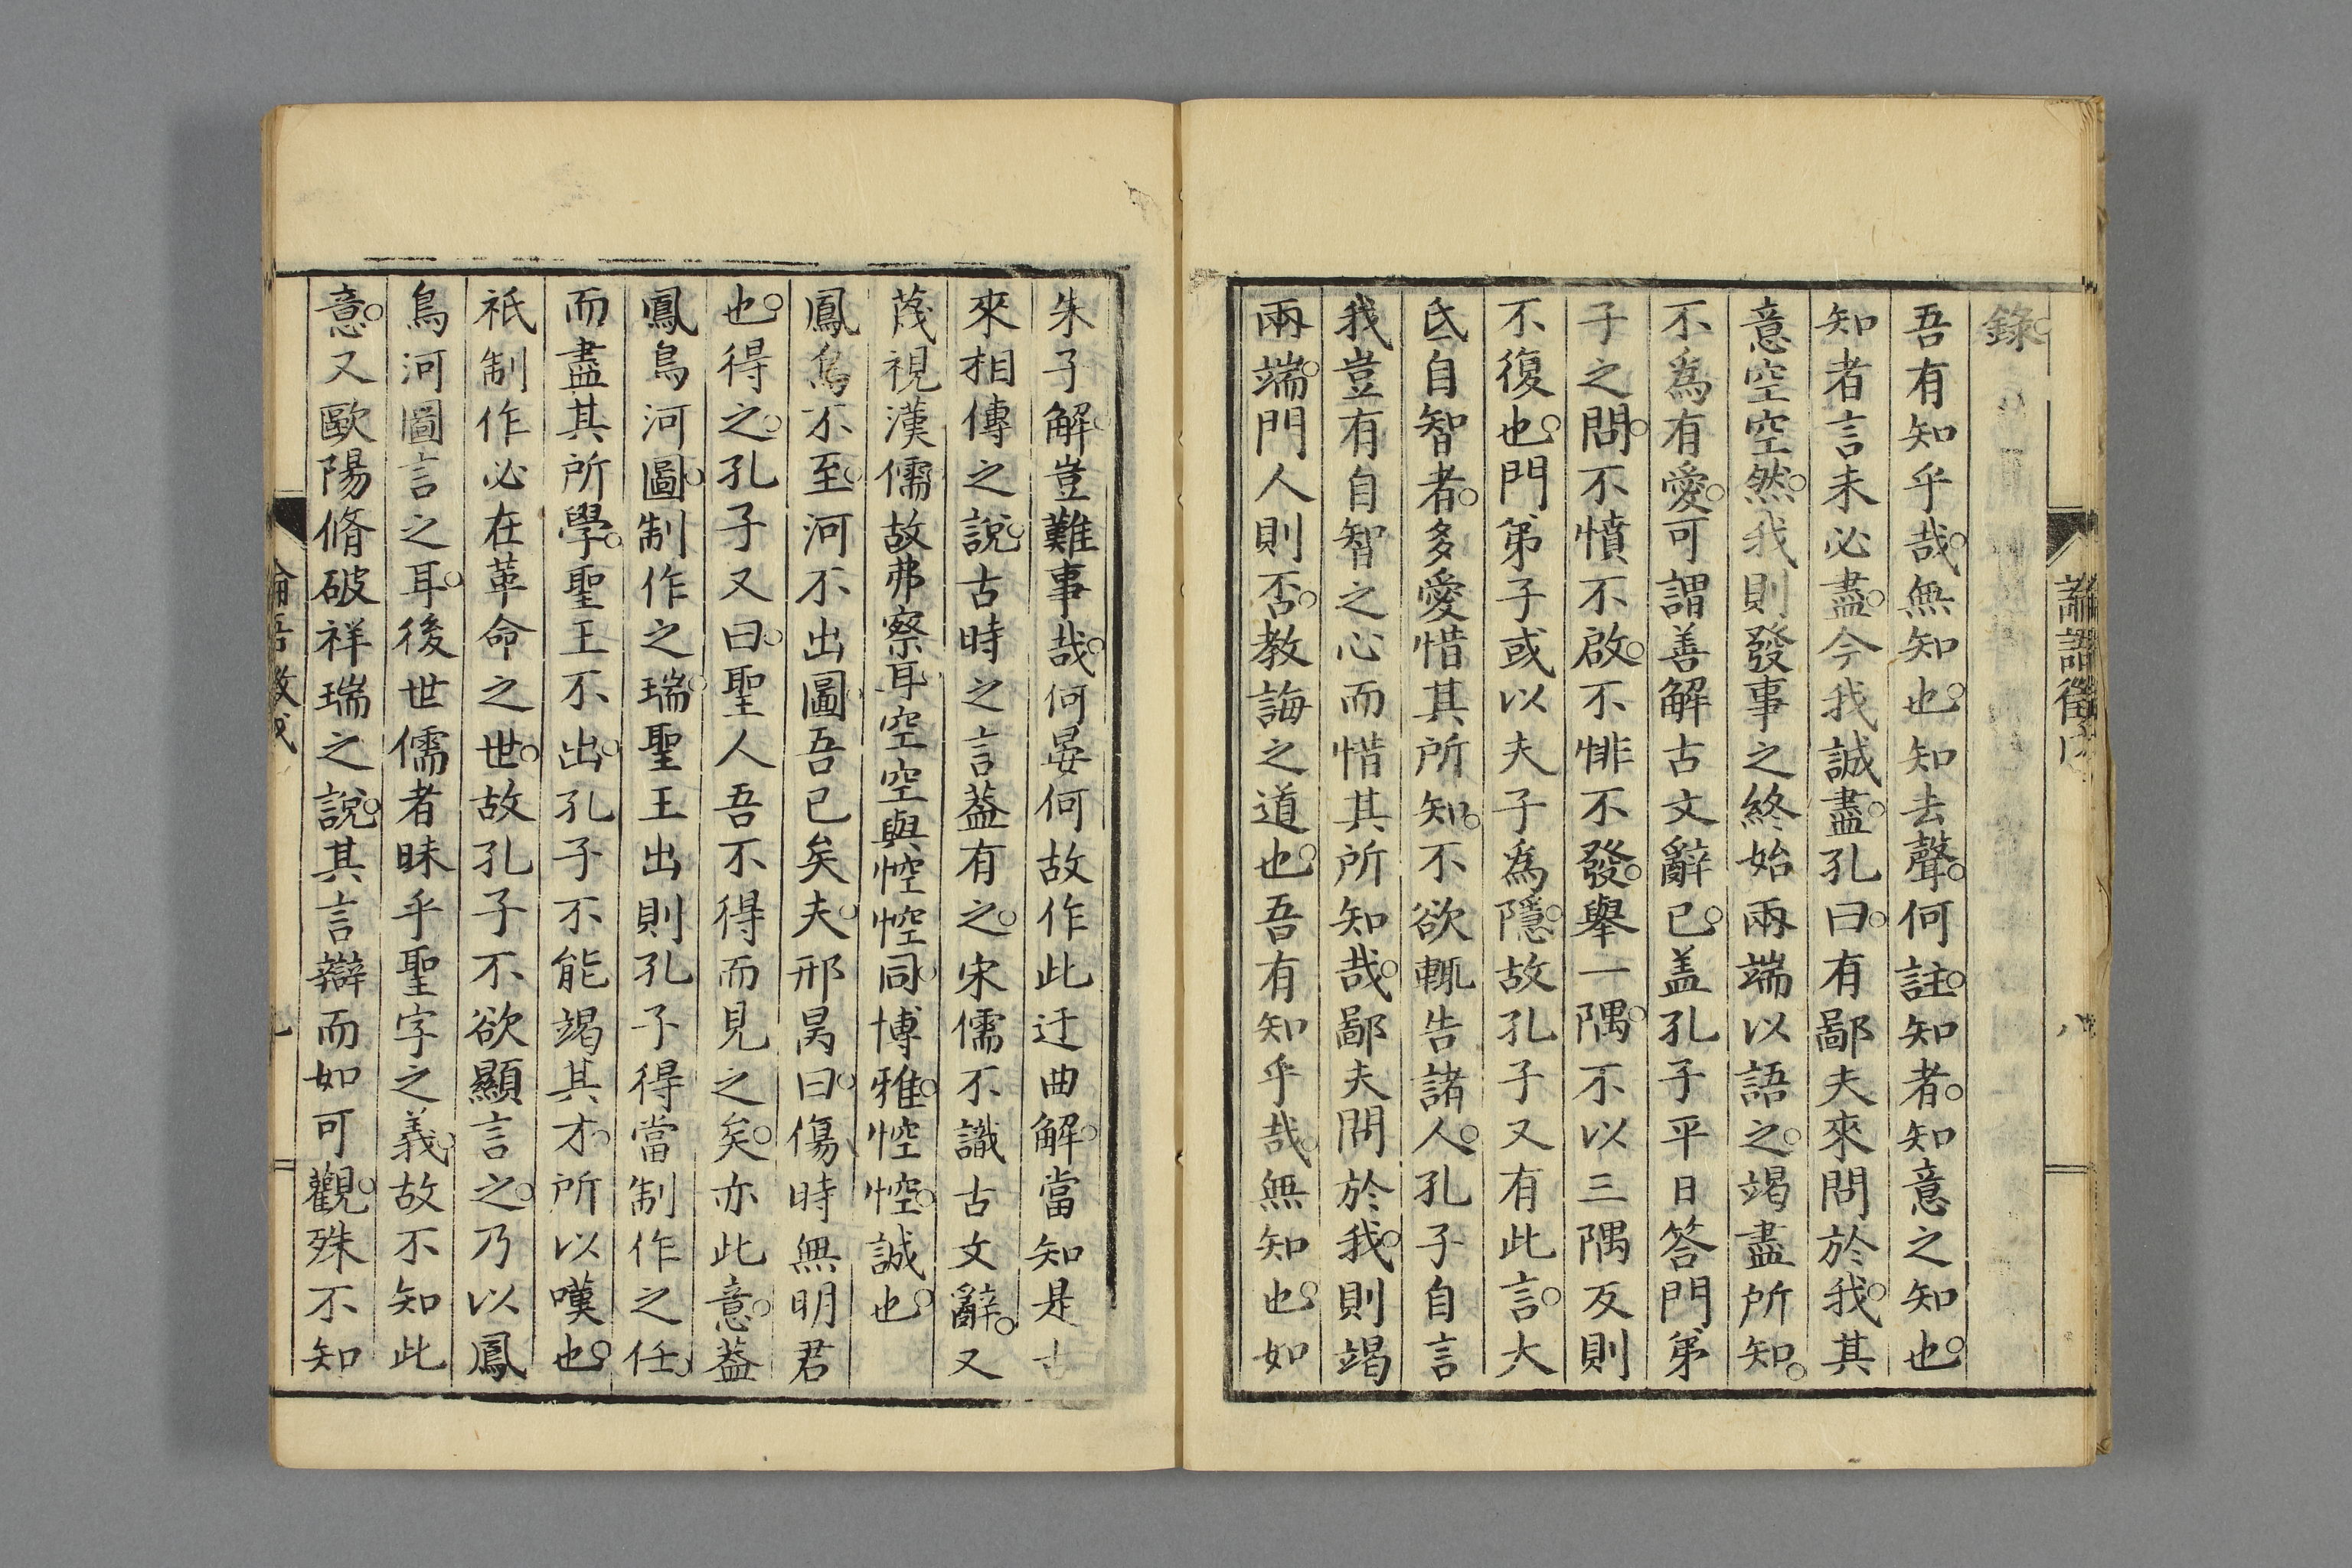 論語徵
八
錄。
吾有知乎哉。無知也。知去聲。何註。知者。知意之知也。
知者言未必盡。今我誠盡。孔曰。有鄙夫來問於我。其
意空空然。我則發事之終始兩端以語之。竭盡所知。
不爲有愛。可謂善解古文辭已。盖孔子平日答門弟
子之問。不憤不啟。不悱不發。舉一隅。不以三隅反則
不復也。門弟子或以夫子爲隱。故孔子又有此言。大
氐自智者。多愛惜其所知。不欲輒告諸人。孔子自言
我豈有自智之心而惜其所知哉。鄙夫問於我。則竭
兩端。門人則否。教誨之道也。吾有知乎哉。無知也。如
朱子解。豈難事哉。何晏何故作此迂曲解。當知是古
來相傳之說。古時之言。葢有之。宋儒不識古文辭。又
蔑視漢儒故弗察耳。空空與悾悾同。博雅。悾悾。誠也。
鳳鳥不至。河不出圖。吾已矣夫。邢昺曰。傷時無明君
也。得之。孔子又曰。聖人吾不得而見之矣。亦此意。葢
鳳鳥河圖。制作之瑞。聖王出則孔子得當制作之任。
而盡其所學。聖王不出。孔子不能竭其才。所以嘆也。
祇制作必在革命之世。故孔子不欲顯言之。乃以鳳
鳥河圖言之耳。後世儒者昧乎聖字之義。故不知此
意。又歐陽脩破祥瑞之說。其言辯而如可觀。殊不知